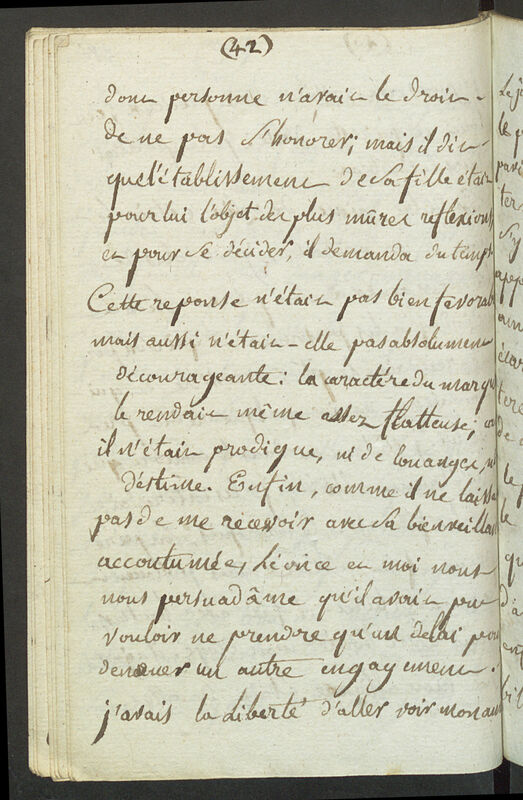 (42)
dont personne n'avait le droit
de ne pas s'honorer; mais il dit
que l'établissement de sa fille était
pour lui l'objet des plus mûres reflexions
et pour se décider, il demanda du temps
Cette reponse n'était pas bien favorab
mais aussi n'était-elle pas absolument
décourageante: la caractére du marqu
le rendait même assez flatteuse; ca
il n'était prodigue, ni de louanges, ni
d'éstime. Enfin, comme il ne laissa
pas de me recevoir avec sa bienveillan
accoutumée, et moi nous
nous persuadâme qu'il avait pu
vouloir ne prendre qu'un delai pour
denouer un autre engagement.
j'avais la liberté d'aller voir mon am